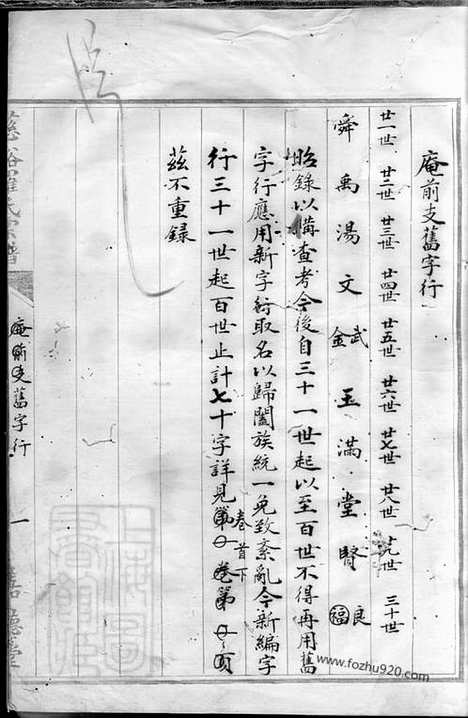 庵前支舊字行
廿一世 廿二世 廿三世 廿四世 廿五世 廿六世 廿七世 廿八世 廿九世 三十世
舜 禹 湯 文 武 玉 滿 堂 賢 良
福
照錄以備查考今後自三十一世起以至百世不得再用舊
字行應用新字衍取名以歸闔族統一免致紊亂今新編字
行三十一世起百世止計七十字詳見卷首下
茲不重錄
慈谿羅氏宗譜
庵前支舊字行
一
www.fozhu920.com